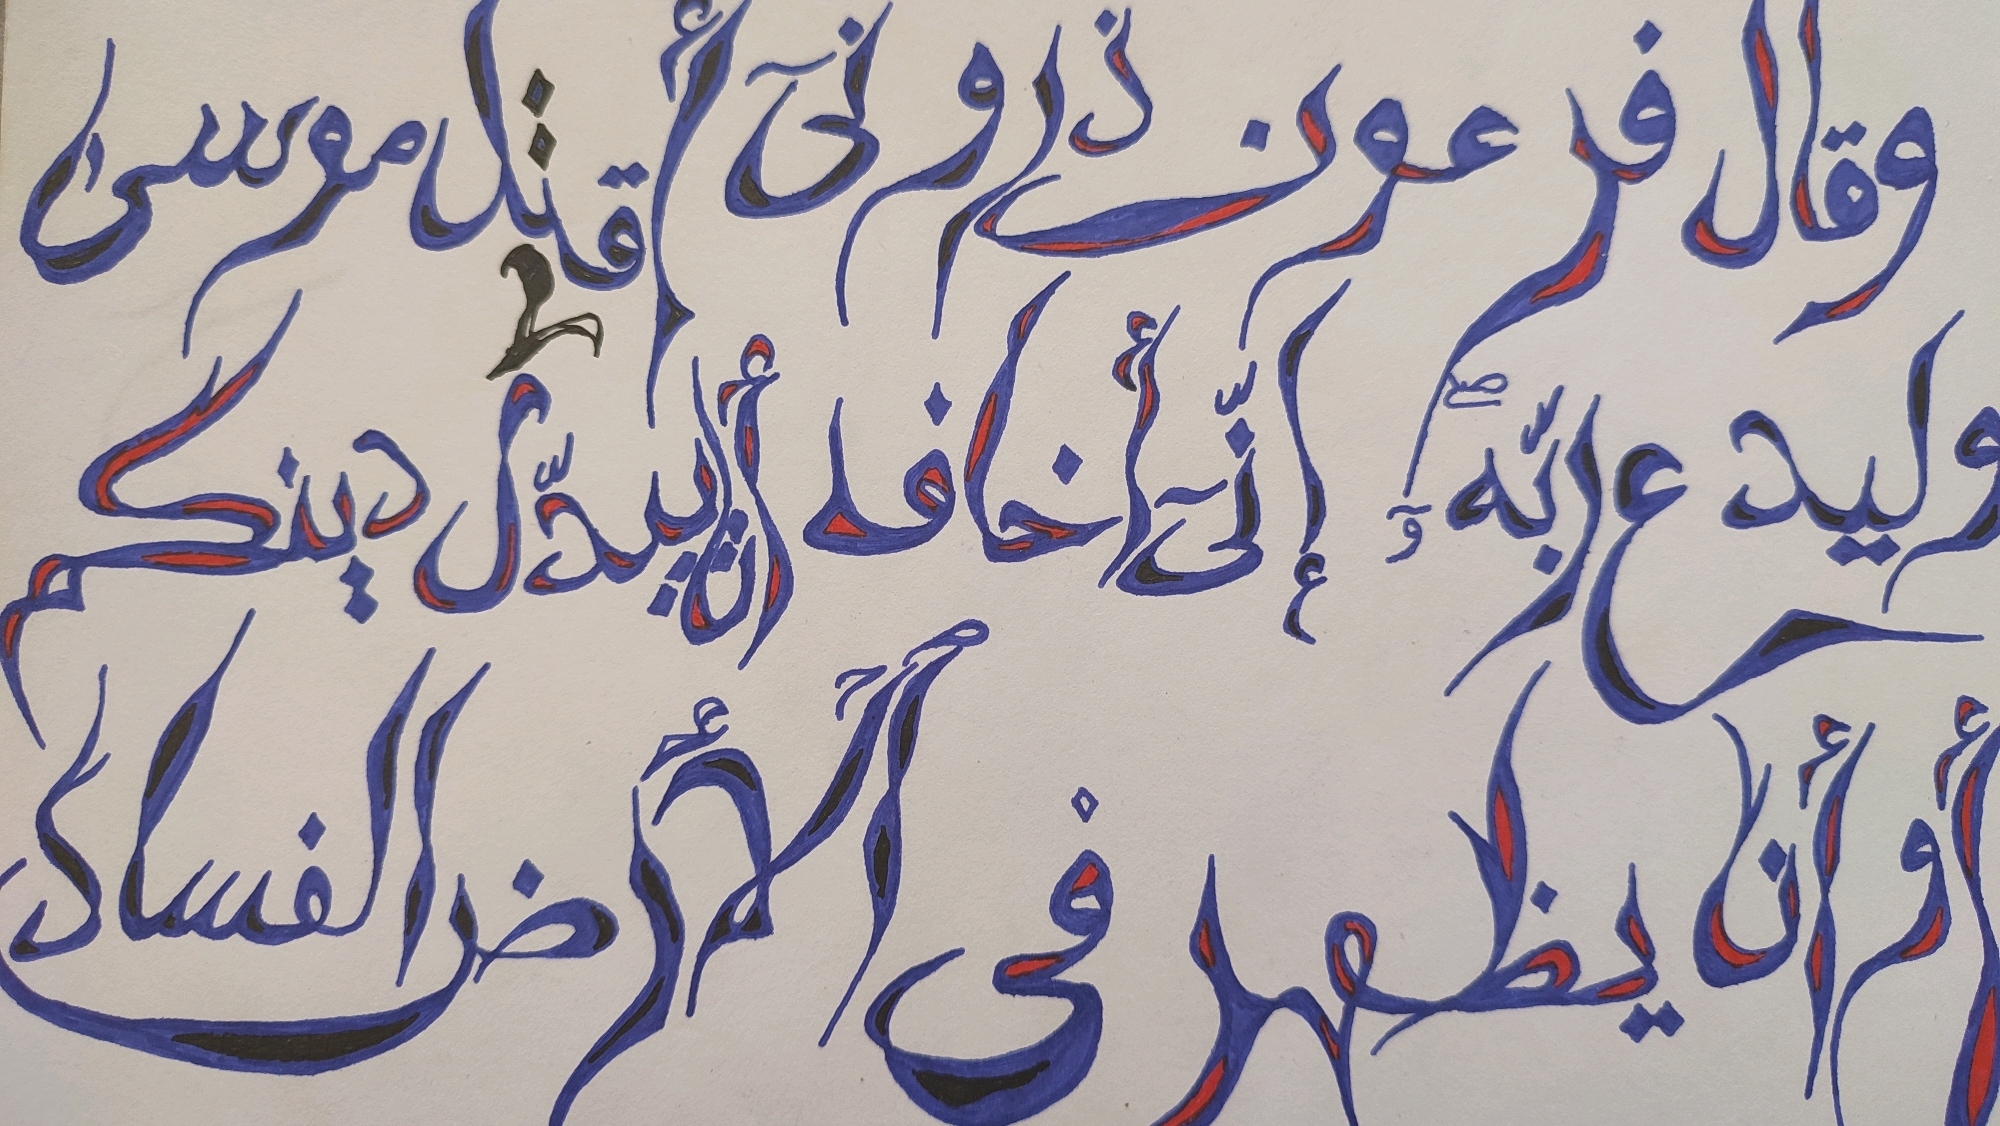 وقال فرعون ذرونىٓ أقتل موسى
وليدع ربّهۥٓۖ إنّىٓ أخاف أن يبدّل دينكم
أو أن يظهر فى ٱلأرض الفساد